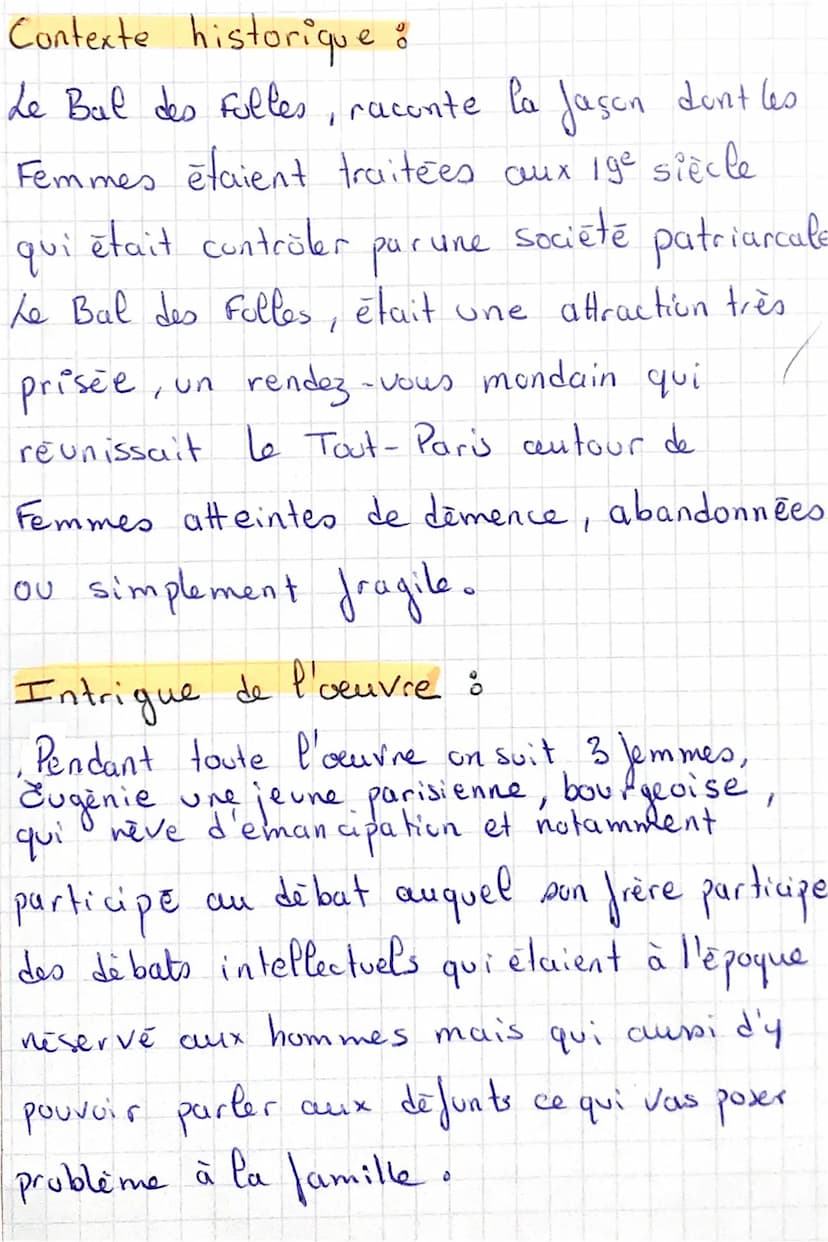 Contexte historique :
Le Bal des Folles, raconte la façon dont les
Femmes étaient traitées aux 19e siècle
qui était contrôler par une société patriarcale
Le Bal des Folles, était une attraction très
prisée, un rendez-vous mondain qui
réunissait le Tout-Paris autour de
Femmes atteintes de démence, abandonnées
ou simplement fragile.
Intrigue de l'œuvre :
. Pendant toute l'œuvre on suit 3 femmes,
Eugénie une jeune parisienne, bourgeoise,
qui rêve d'émancipation et notamment
participé au débat auquel son frère participe
des débats intellectuels qui étaient à l'époque
réservé aux hommes mais qui aussi d'y
pouvoir parler aux défunts ce qui vas poser
problème à la famille.